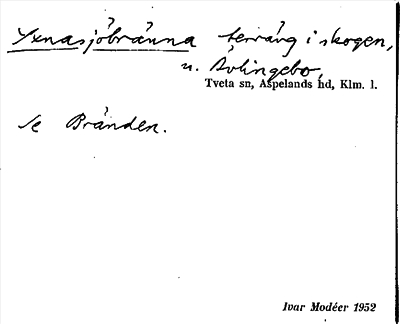 Yxnasjöbränna terräng i skogen,
n. Åvlingebo,
Tveta sn, Aspelands hd, Klm. l.
Se Bränden.
Ivar Modéer 1952